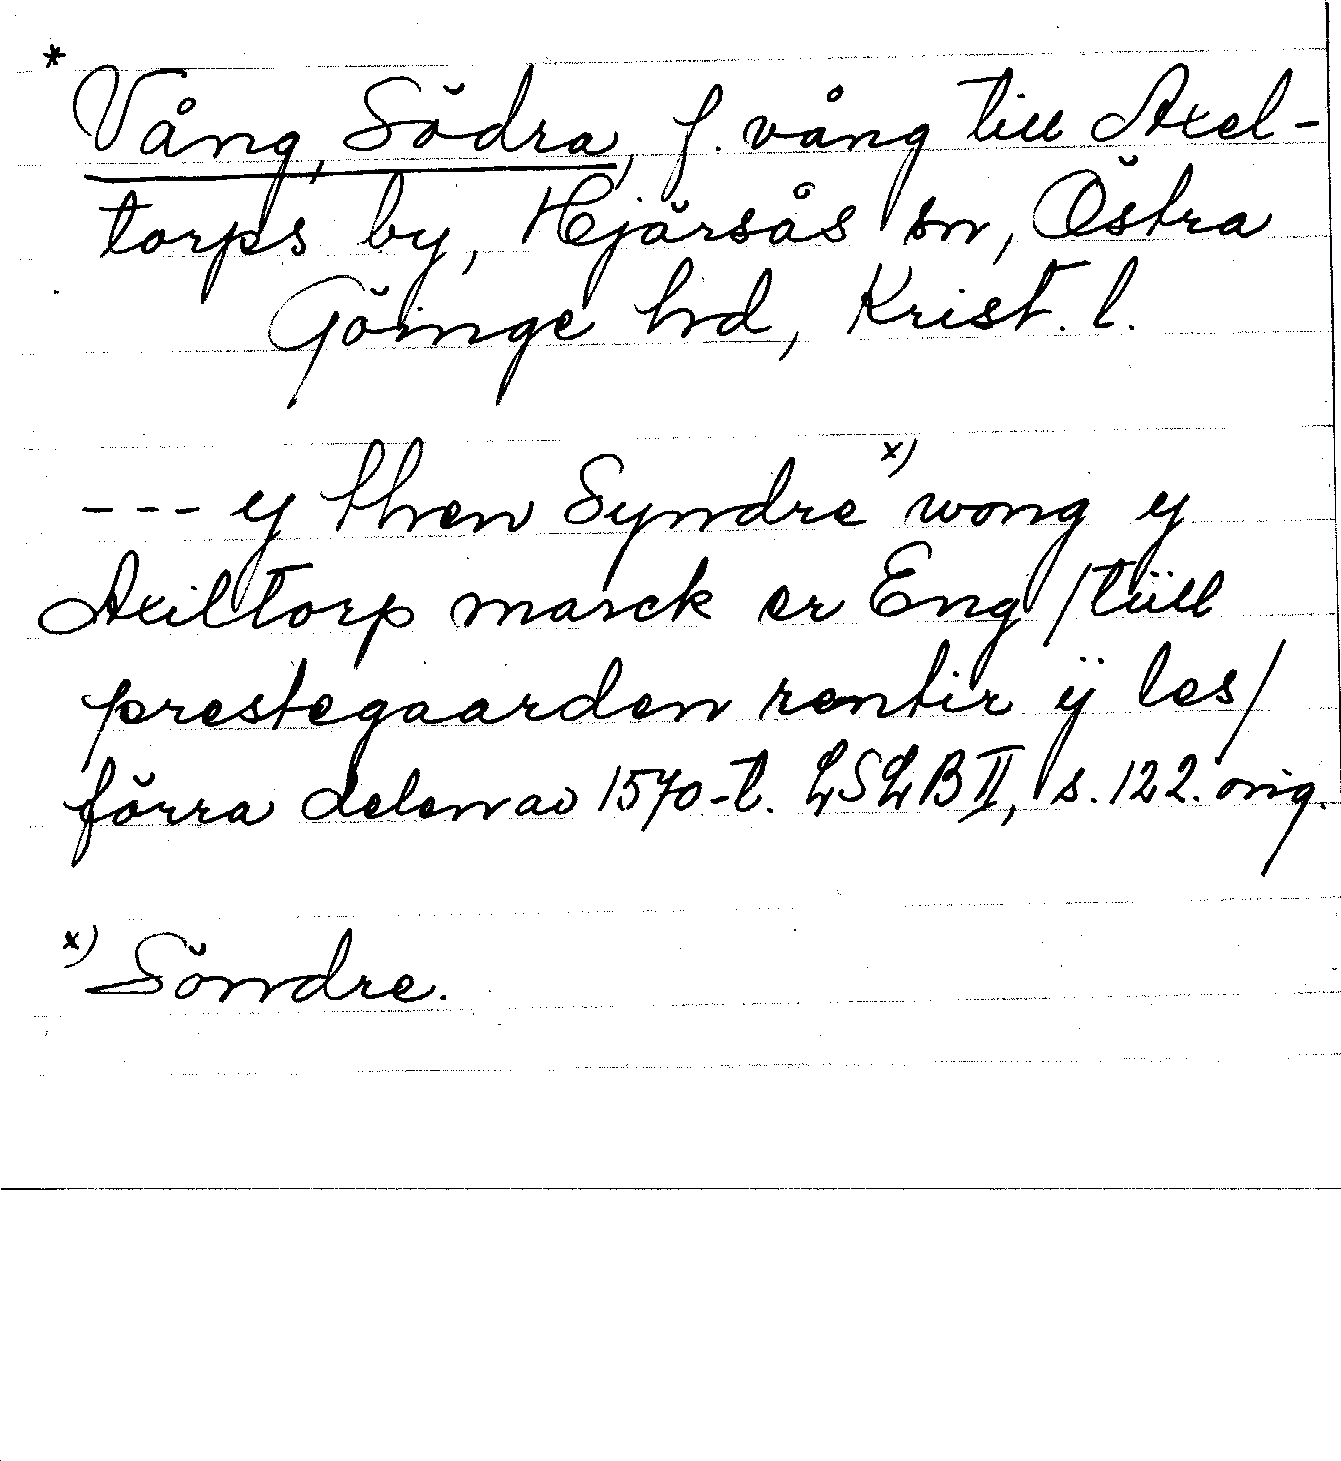 * Vång, Södra, f. vång till Axel-
torps by, Hjärsås sn, Östra
Göinge hd, Krist. l.
--- y then Syndre x) wong y
Axiltorp marck er Eng /tüll
prestegaarden rentir ÿ les/
förra delen av 1570-t. LSLB II, s. 122. orig.
x) Söndre.